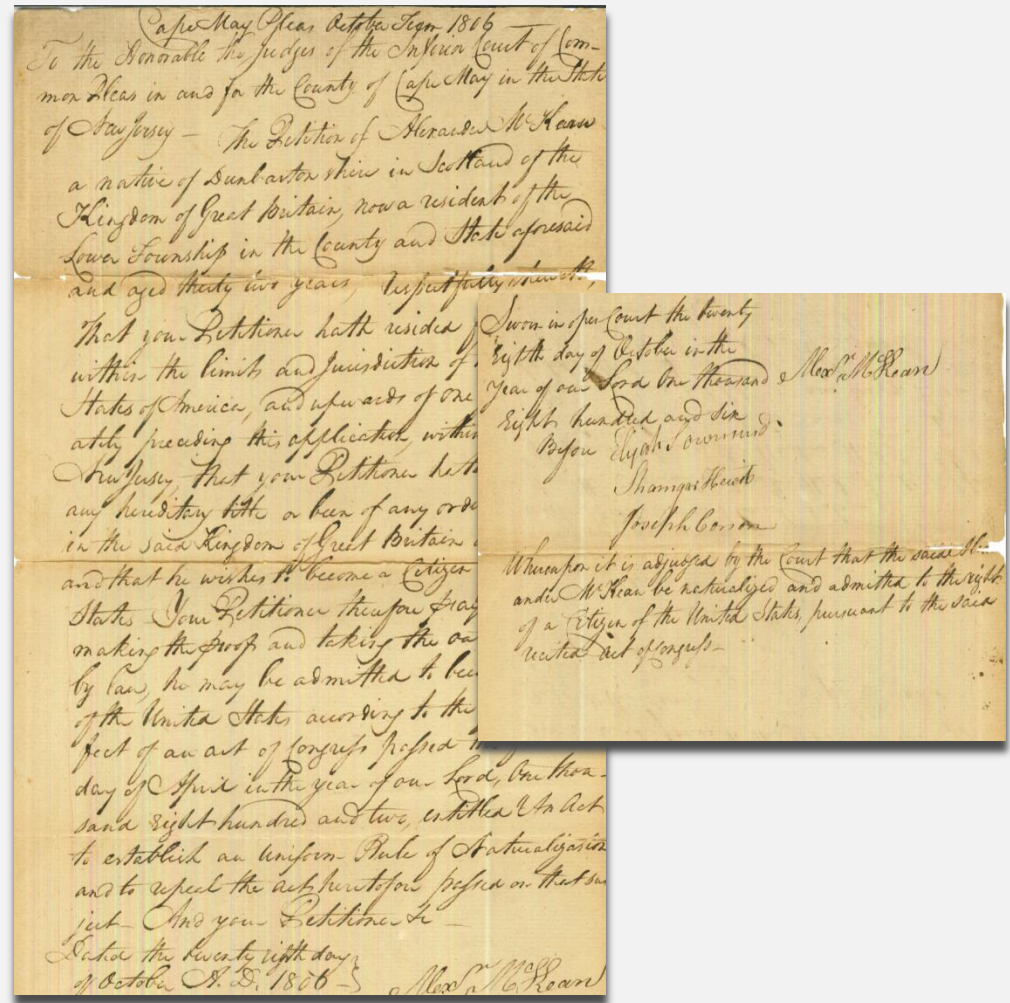 Cape May Pleas October Term 1806
To the Honorable the Judges of the Inferior Court of Com-
mon Pleas in and for the County of Cape May in the State
of New Jersey — The Petition of Alexander McKean
a native of Dunbarton shire in Scotland of the
Kingdom of Great Britain, now a resident of the
Lower Township in the County and State aforesaid
and aged thirty two years, Respectfully sheweth,
That your Petitioner hath resided
within the limits and Jurisdiction of
States of America, and upwards of one
ately preceding this application, within
New Jersey, that your Petitioner hath
any hereditary title or been of any orde
in the said Kingdom of Great Britain
and that he wishes to become a Citizen
States Your Petitioner therefore pray
making the proof and taking the oa
by Law, he may be admitted to bec
of the United States according to the
fect of an act of Congress passed
day of April in the year of our Lord, One thou-
sand Eight hundred and two, entitled "An Act
to establish an Uniform Rule of Naturalization
and to repeal the acts heretofore passed on that sub
ject — And your Petitioner &c —
Dated the twenty eighth day
of October A.D. 1806 — Alexr McKean
Sworn in open Court the twenty
Eighth day of October in the
Year of our Lord One thousand Alexr McKean
Eight hundred and Six
Before Elijah Townsend
Joseph Corson
Whereupon it is adjudged by the Court that the said Alex-
ander McKean be naturalized and admitted to the right
of a Citizen of the United States, pursuant to the said
recited Act of Congress —